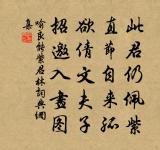 此君仍佩紫
直節自来孤
欲倩文夫子
招邀入畫图
喻良能紫君林詞典網
集